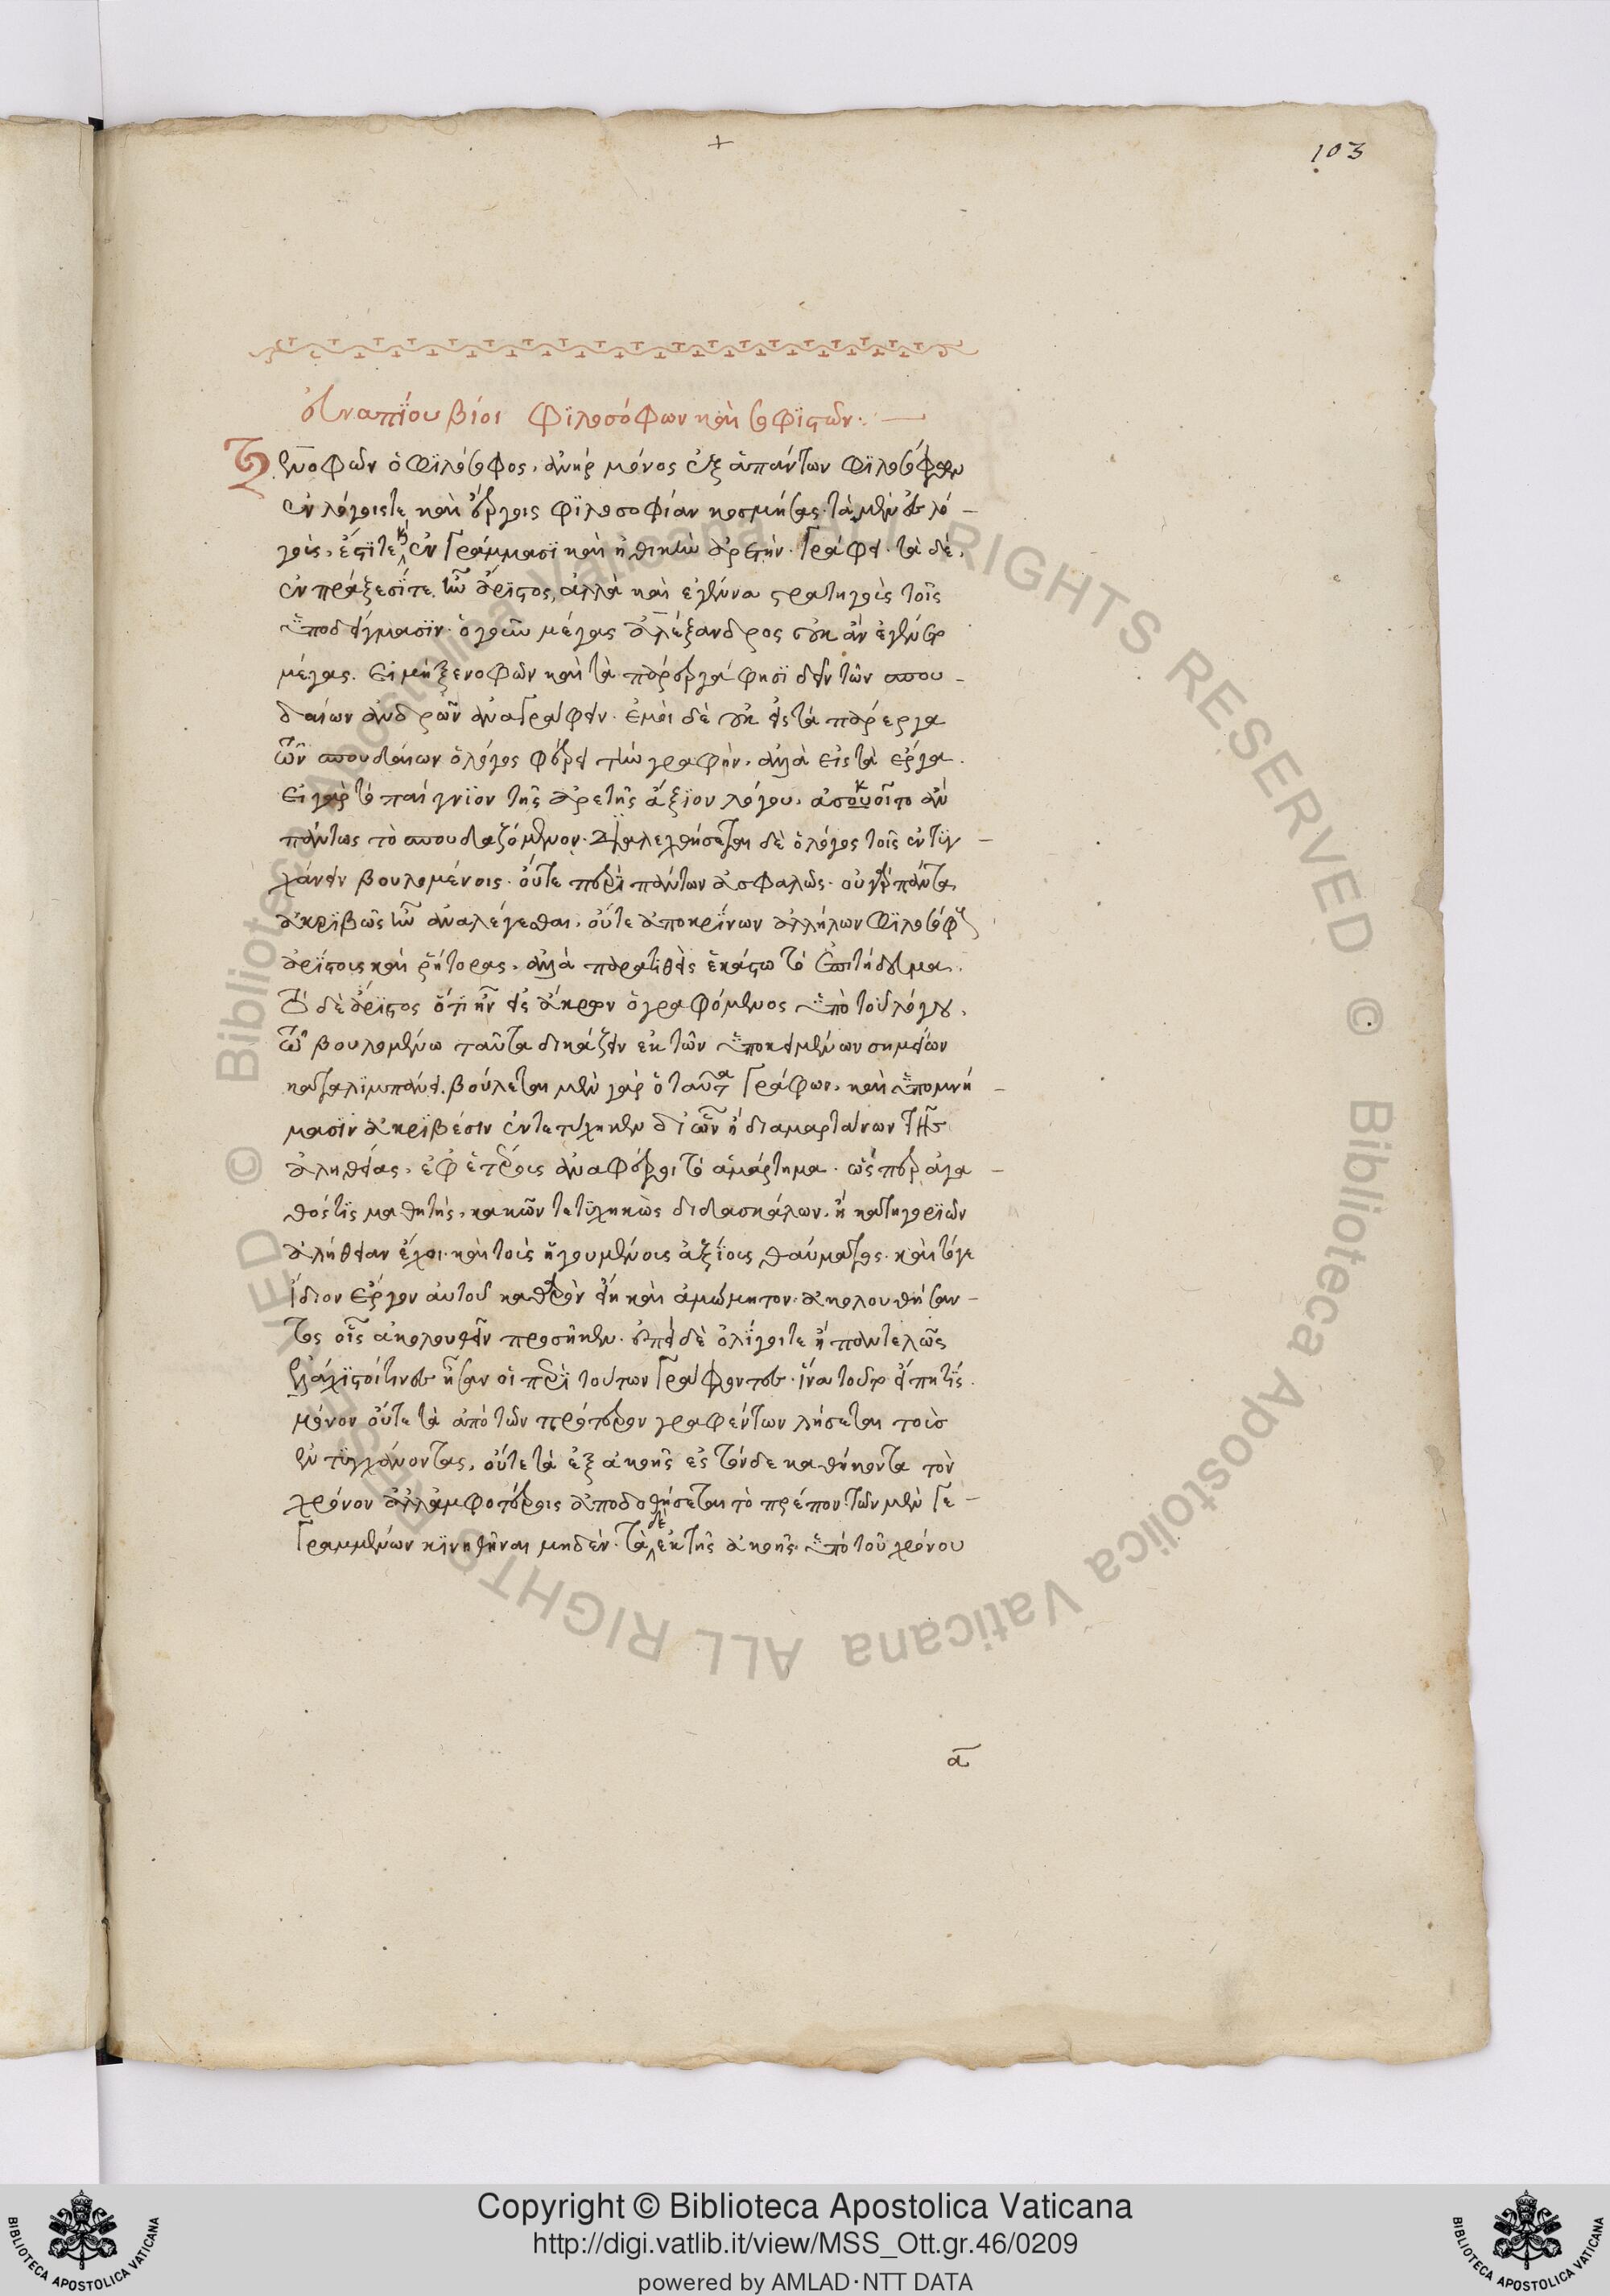 103
εὐναπΐου βίοι φϊλοσόφων καὶ σοφϊστῶν:
Ξενοφῶν ὁ φϊλόσοφος, ἀνὴρ μόνος ἐξ ἁπάντων φϊλοσόφων
ἐν λόγοις τε καὶ ἔργοις φϊλοσοφίαν κοσμήσας. τὰ μὲν ἐς λό-
γοὺς, ἔστι τε καὶ ἐν γράμμασϊ καὶ ἠθικὴν ἀρετὴν γράφει. τὰ δὲ,
ἐν πράξεσί τε ἦν ἄρϊστος, ἀλλὰ καὶ ἐγέννα στρατηγοὺς τοῖς
ὑποδείγμασϊν. ὁ γοῦν μέγας ἀλέξανδρος οὐκ ἂν ἐγένετο
μέγας. εἰ μὴ ξενοφῶν καὶ τὰ πάρεργά φησϊ δεῖν τῶν σπου-
δαίων ἀνδρῶν ἀναγράφειν. ἐμοὶ δὲ οὐκ εἰς τὰ πάρεργα
τῶν σπουδαίων ὁ λόγος φέρει τὴν γραφὴν, ἀλλὰ εἰς τὰ ἔργα.
εἰ γὰρ τὸ παίγνϊον τῆς ἀρετῆς ἄξϊον λόγου,
πάντως τὸ σπουδαζόμενον. διαλεχθήσεται δὲ ὁ λόγος τοῖς ἐντϋγ-
χάνειν βουλομένοις. οὔτε περὶ πάντων ἀσφαλῶς. οὐ γὰρ πάντα
ἀκριβῶς ἦν ἀναλέγεσθαι, οὔτε ἀποκρίνων ἀλλήλων φϊλοσόφους
ἀρίστους καὶ ῥήτορας, ἀλλὰ παρατιθεὶς ἑκάστω τὸ ἐπιτήδευμα.
ὁ δὲ ἄριστος ὅτι ἦν εἰς ἄκρον ὁ γραφόμενος ὑπὸ τοῦ λόγου,
τῶ βουλομένω ταῦτα δικάζειν ἐκ τῶν ὑποκειμένων σημείων
καταλιμπάνει. βούλεται μὲν γὰρ ὁ ταῦτα γράφων, καὶ ὑπομνή-
μασιν ἀκριβέσιν ἐντετύχηκεν δι ὧν ἢ διαμαρτάνων τῆς
ἀληθείας, ἐφ ἑτέρους ἀναφέροι τὸ ἁμάρτημα. ὥσπερ ἀγα-
θός τις μαθητὴς, κακῶν τετϋχηκὼς διδασκάλων. ἢ κατηγορϊῶν
ἀλήθειαν ἔχοι. καὶ τοὺς ἡγουμένους ἀξίους θαύματος. καὶ τό γε
ἴδιον ἔργον αὐτοῦ καθαρὸν εἴη καὶ ἀμώμητον. ἀκολουθήσαν-
τος οἷς ἀκολουθεῖν προσῆκεν. ἐπεὶ δὲ ὀλίγοι τε ἢ παντελῶς
ἐλάχιστοί τινες ἦσαν οἱ περὶ τούτων γράφοντες. ἵνα τοῦτο εἴπη τϊς
μόνον οὔτε τὰ ἀπὸ τῶν πρότερον γραφέντων λήσεται τοὺσ
ἐντυγχάνοντας, οὔτε τὰ ἐξ ἀκοῆς ἐς τόνδε καθήκοντα τὸν
χρόνον ἀλλ ἀμφοτέροις ἀποδοθήσεται τὸ πρέπον. τῶν μὲν γε-
γραμμένων κϊνηθῆναι μηδέν. τὰ δὲ ἐκ τῆς ἀκοῆς ὑπὸ τοῦ χρόνου
α
Copyright © Biblioteca Apostolica Vaticana
http://digi.vatlib.it/view/MSS_Ott.gr.46/0209
powered by AMLAD·NTT DATA